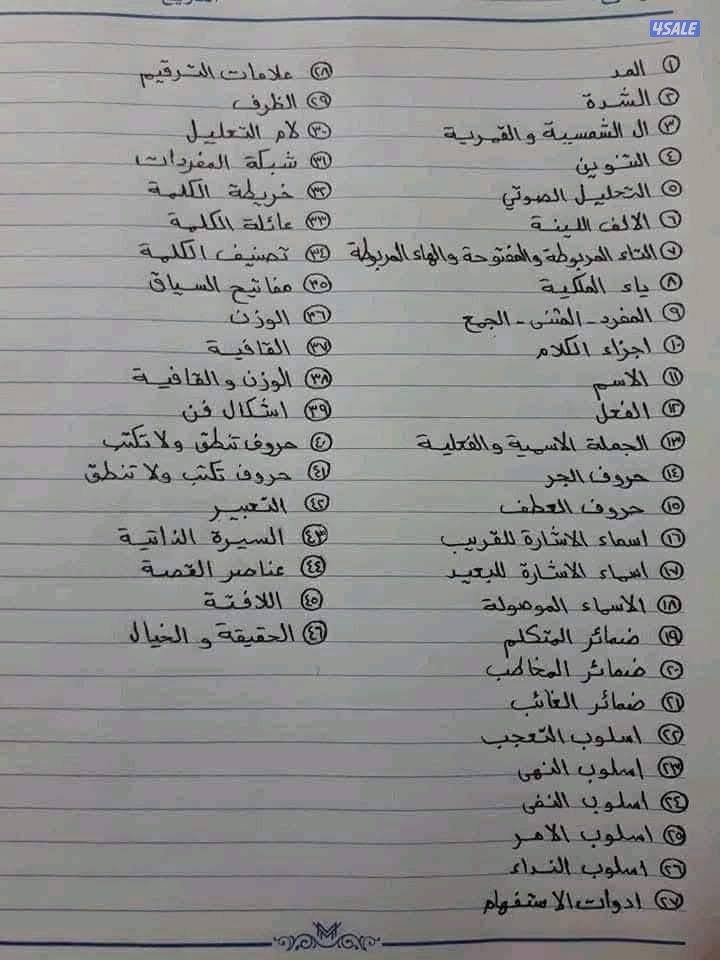 4SALE
١ المد
٢ الشدة
٣ ال الشمسية والقمرية
٤ التنوين
٥ التحليل الصوتي
٦ الالف اللينة
٧ التاء المربوطة والمفتوحة والهاء المربوطة
٨ ياء الملكية
٩ المفرد - المثنى - الجمع
١٠ اجزاء الكلام
١١ الاسم
١٢ الفعل
١٣ الجملة الاسمية والفعلية
١٤ حروف الجر
١٥ حروف العطف
١٦ اسماء الاشارة للقريب
١٧ اسماء الاشارة للبعيد
١٨ الاسماء الموصولة
١٩ ضمائر المتكلم
٢٠ ضمائر المخاطب
٢١ ضمائر الغائب
٢٢ اسلوب التعجب
٢٣ اسلوب النهى
٢٤ اسلوب النفى
٢٥ اسلوب الامر
٢٦ اسلوب النداء
٢٧ ادوات الاستفهام
٢٨ علامات الترقيم
٢٩ الظرف
٣٠ لام التعليل
٣١ شبكة المفردات
٣٢ خريطة الكلمة
٣٣ عائلة الكلمة
٣٤ تصنيف الكلمة
٣٥ مفاتيح السياق
٣٦ الوزن
٣٧ القافية
٣٨ الوزن والقافية
٣٩ اشكال فن
٤٠ حروف تنطق ولا تكتب
٤١ حروف تكتب ولا تنطق
٤٢ التعبير
٤٣ السيرة الذاتية
٤٤ عناصر القصة
٤٥ اللافتة
٤٦ الحقيقة و الخيال